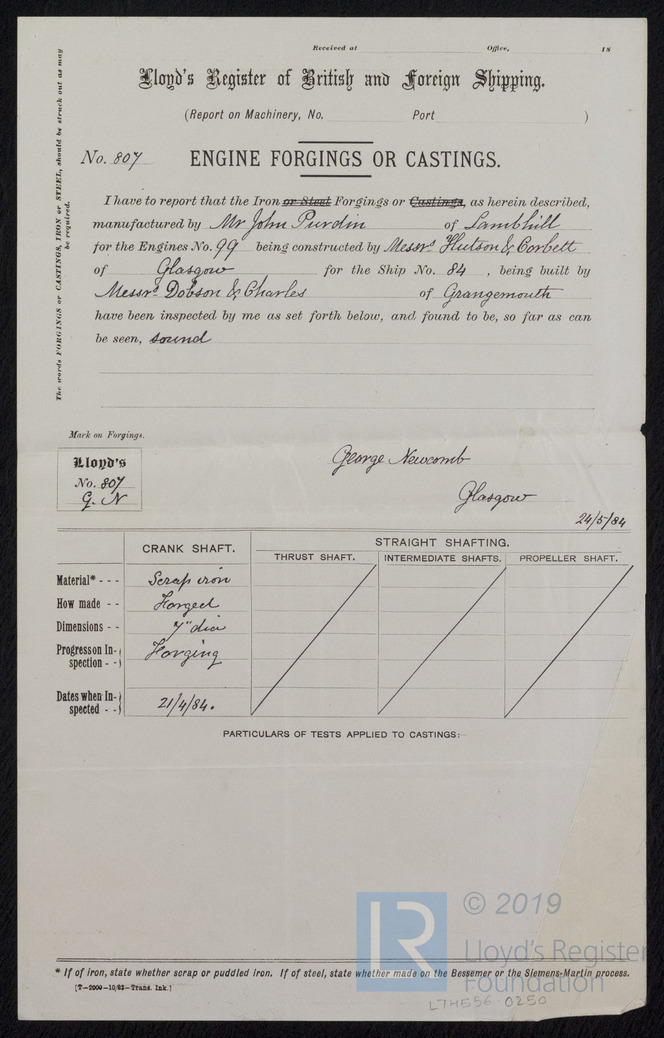 Received at Office, 18
Lloyd's Register of British and Foreign Shipping.
(Report on Machinery, No. Port )
No. 807 ENGINE FORGINGS OR CASTINGS.
The words FORGINGS or CASTINGS, IRON or STEEL, should be struck out as may
be required.
I have to report that the Iron or Steel Forgings or Castings, as herein described,
manufactured by Mr John Purdin of Lambhill
for the Engines No. 99 being constructed by Messrs Hutson & Corbett
of Glasgow for the Ship No. 84, being built by
Messrs Dobson & Charles of Grangemouth
have been inspected by me as set forth below, and found to be, so far as can
be seen, sound
Mark on Forgings.
Lloyd's
No. 807
G. N
George Newcomb
Glasgow
24/5/84
CRANK SHAFT. STRAIGHT SHAFTING.
THRUST SHAFT. INTERMEDIATE SHAFTS. PROPELLER SHAFT.
Material* - - - Scrap iron
How made - - Forged
Dimensions - - 7" dia
Progress on In-
spection - - Forging
Dates when In-
spected - - 21/4/84.
PARTICULARS OF TESTS APPLIED TO CASTINGS:-
© 2019
LR
Lloyd's Register
Foundation
* If of iron, state whether scrap or puddled iron. If of steel, state whether made on the Bessemer or the Siemens-Martin process.
[T-2000-10/83-Trans. Ink.]
L7HE56-0250